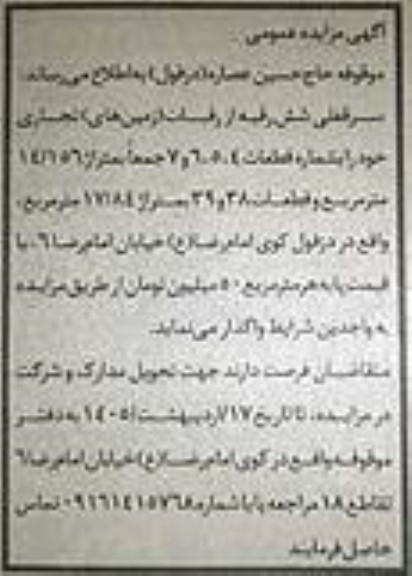 آگهی مزایده عمومی
موقوفه حاج حسین عصاره (دزفول) به اطلاع می رساند:
سرقفلی شش رقبه از رقبات (زمین های) تجاری
خود را بشماره قطعات ۴، ۵، ۶ و ۷ جمعاً بمتراژ ۱۴/۱۵۶
مترمربع و قطعات ۳۸ و ۳۹ بمتراژ ۱۷/۸۴ مترمربع،
واقع در دزفول کوی امام رضا(ع) خیابان امام رضا ۶، با
قیمت پایه هر مترمربع ۵۰ میلیون تومان از طریق مزایده
به واجدین شرایط واگذار می نماید.
متقاضیان فرصت دارند جهت تحویل مدارک و شرکت
در مزایده، تا تاریخ ۱۷/اردیبهشت/۱۴۰۵ به دفتر
موقوفه واقع در کوی امام رضا(ع) خیابان امام رضا ۶
تقاطع ۱۸ مراجعه یا با شماره ۰۹۱۶۱۴۱۵۷۶۸ تماس
حاصل فرمایند